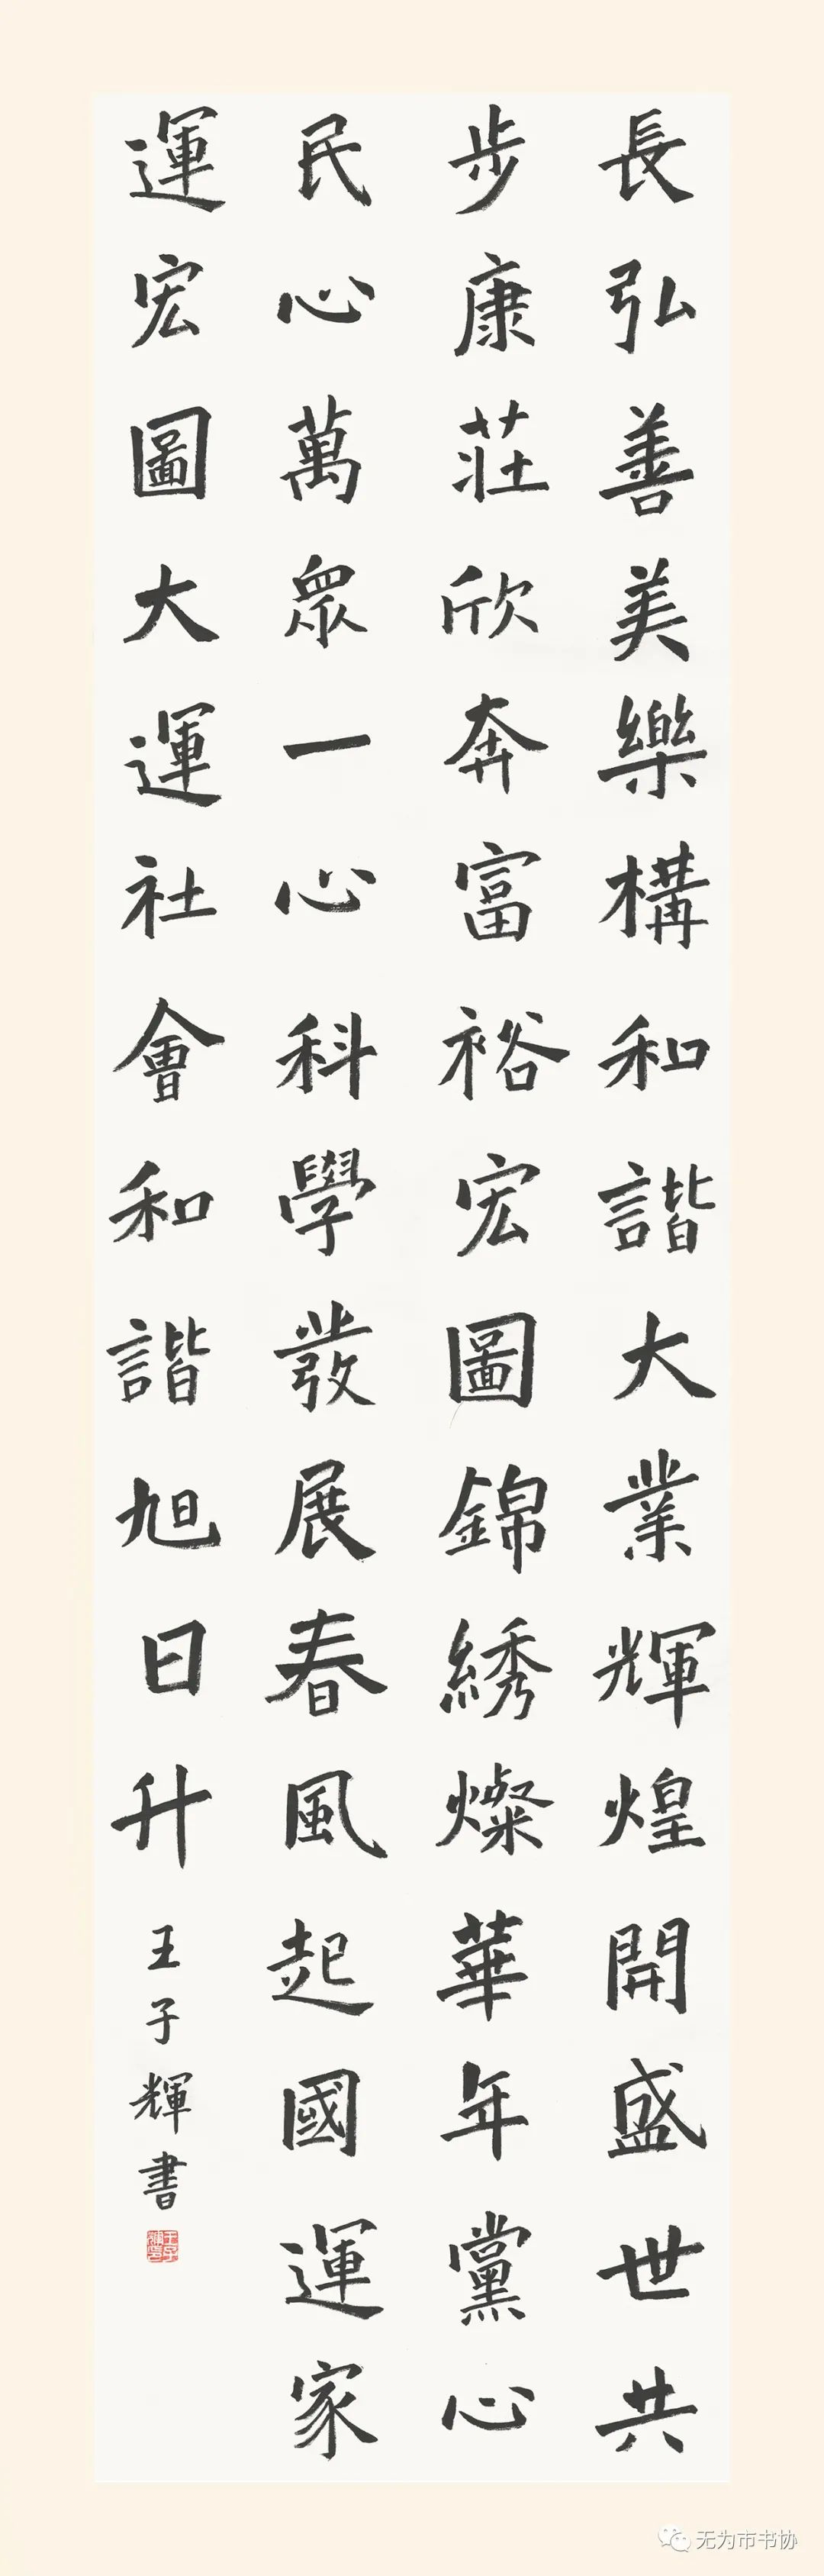 長弘善美樂構和諧大業輝煌開盛世共
步康莊欣奔富裕宏圖錦綉燦華年黨心
民心萬眾一心科學發展春風起國運家
運宏圖大運社會和諧旭日升
王子輝書
无为市书协